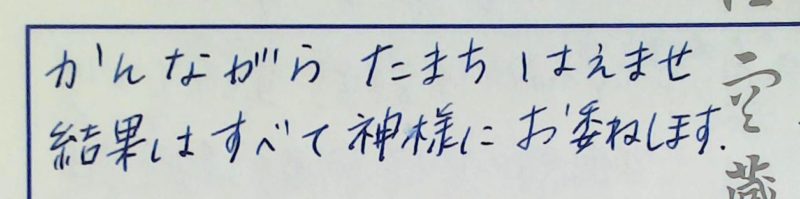 かんながら たまち はえませ
結果はすべて神様にお委ねします.
空蔵